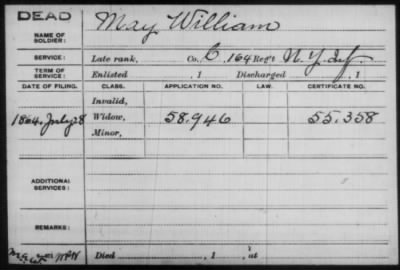 DEAD
NAME OF SOLDIER: May, William
SERVICE: Late rank, Co. C, 164 Reg't N.Y. Inf.
TERM OF SERVICE: Enlisted , 1 Discharged , 1
DATE OF FILING. CLASS. APPLICATION NO. LAW. CERTIFICATE NO.
Invalid,
1864, July 28 Widow, 58.946 55.358
Minor,
ADDITIONAL SERVICES:
REMARKS:
Died , 1 , at